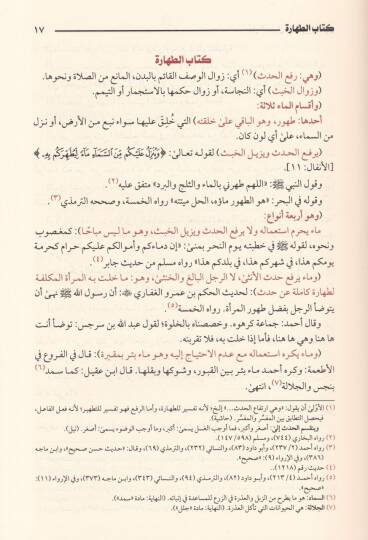 كتاب الطهارة ١٧
كتاب الطهارة
(وهي: رفع الحدث)(١) أي: زوال الوصف القائم بالبدن، المانع من الصلاة ونحوها.
(وزوال الخبث) أي: النجاسة، أو زوال حكمها بالاستجمار أو التيمم.
(وأقسام الماء ثلاثة:
أحدها: طهور، وهو الباقي على خلقته) التي خُلِقَ عليها سواء نبع من الأرض، أو نزل
من السماء، على أي لون كان.
(يرفع الحدث ويزيل الخبث) لقوله تعالى: ﴿وَيُنَزِّلُ عَلَيْكُم مِّنَ السَّمَاءِ مَاءً لِّيُطَهِّرَكُم بِهِ﴾
[الأنفال: ١١].
وقول النبي ﷺ: «اللهم طهرني بالماء والثلج والبرد» متفق عليه(٢).
وقوله في البحر: «هو الطهور ماؤه، الحل ميتته» رواه الخمسة، وصححه الترمذي(٣).
(وهو أربعة أنواع:
ما يحرم استعماله ولا يرفع الحدث ويزيل الخبث، وهو ما ليس مباحًا): كمغصوب
ونحوه، لقوله ﷺ في خطبته يوم النحر بمنى: «إن دماءكم وأموالكم عليكم حرام كحرمة
يومكم هذا، في شهركم هذا، في بلدكم هذا» رواه مسلم من حديث جابر(٤).
(وما يرفع حدث الأنثى، لا الرجل البالغ والخنثى، وهو: ما خلت به المرأة المكلفة
لطهارة كاملة عن حدث): لحديث الحكم بن عمرو الغفاري: أن رسول الله ﷺ نهى أن
يتوضأ الرجل بفضل طهور المرأة. رواه الخمسة(٥).
وقال أحمد: جماعة كرهوه. وخصصناه بالخلوة؛ لقول عبد الله بن سرجس: توضأ أنت
ها هنا وهي ها هنا، فأما إذا خلت به، فلا تقربنه.
(وما يكره استعماله مع عدم الاحتياج إليه وهو ما بئر بمقبرة): قال في الفروع في
الأطعمة: وكره أحمد ماء بئر بين القبور، وشوكها وبقلها. قال ابن عقيل: كما سمد(٦)
بنجس والجلالة(٧)، انتهى.
(١) الأولى أن يقول: «وهي ارتفاع الحدث...» إلخ؛ لأنه تفسير للطهارة، وأما الرفع فهو تفسير للتطهير؛ لأنه فعل الفاعل،
فيحصل التطابق بين المفسِّر والمفسَّر. (حاشية).
وينقسم الحدث إلى: أصغر وأكبر، فما أوجب الغسل يسمى: أكبر، وما أوجب الوضوء يسمى: أصغر. (نيل).
(٢) رواه البخاري (٧٤٤)، ومسلم (٥٩٨/ ١٤٧).
(٣) رواه أحمد (٢/ ٢٣٧)، وأبو داود (٨٣)، والنسائي (٣٣٢)، والترمذي (٦٩)، وقال: «حديث حسن صحيح»، وابن ماجه
(٣٨٦)، وفي الإرواء (٩): «صحيح».
(٤) حديث رقم (١٢١٨).
(٥) رواه أحمد (٤/ ٢١٣)، وأبو داود (٨٢)، والترمذي (٩٤)، والنسائي (٣٤٣)، وابن ماجه (٣٧٣)، وفي الإرواء (١١):
«صحيح».
(٦) السماد: هو ما يطرح من الزبل والعذرة في الزرع للمساعدة في إنباته. (النهاية: مادة «سمد»).
(٧) الجلالة: هي الحيوانات التي تأكل العذرة. (النهاية: مادة «جلل»).